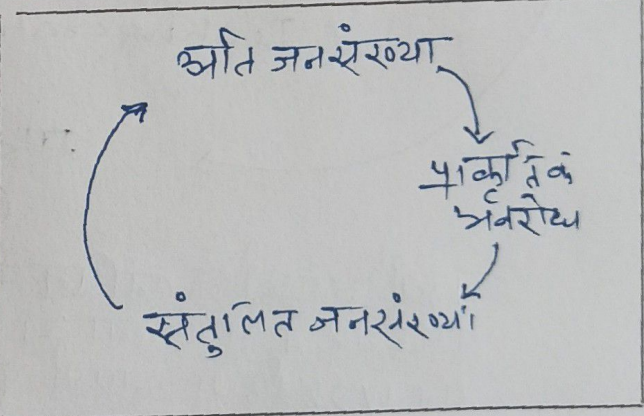 अति जनसंख्या
प्राकृतिक
अवरोध
संतुलित जनसंख्या